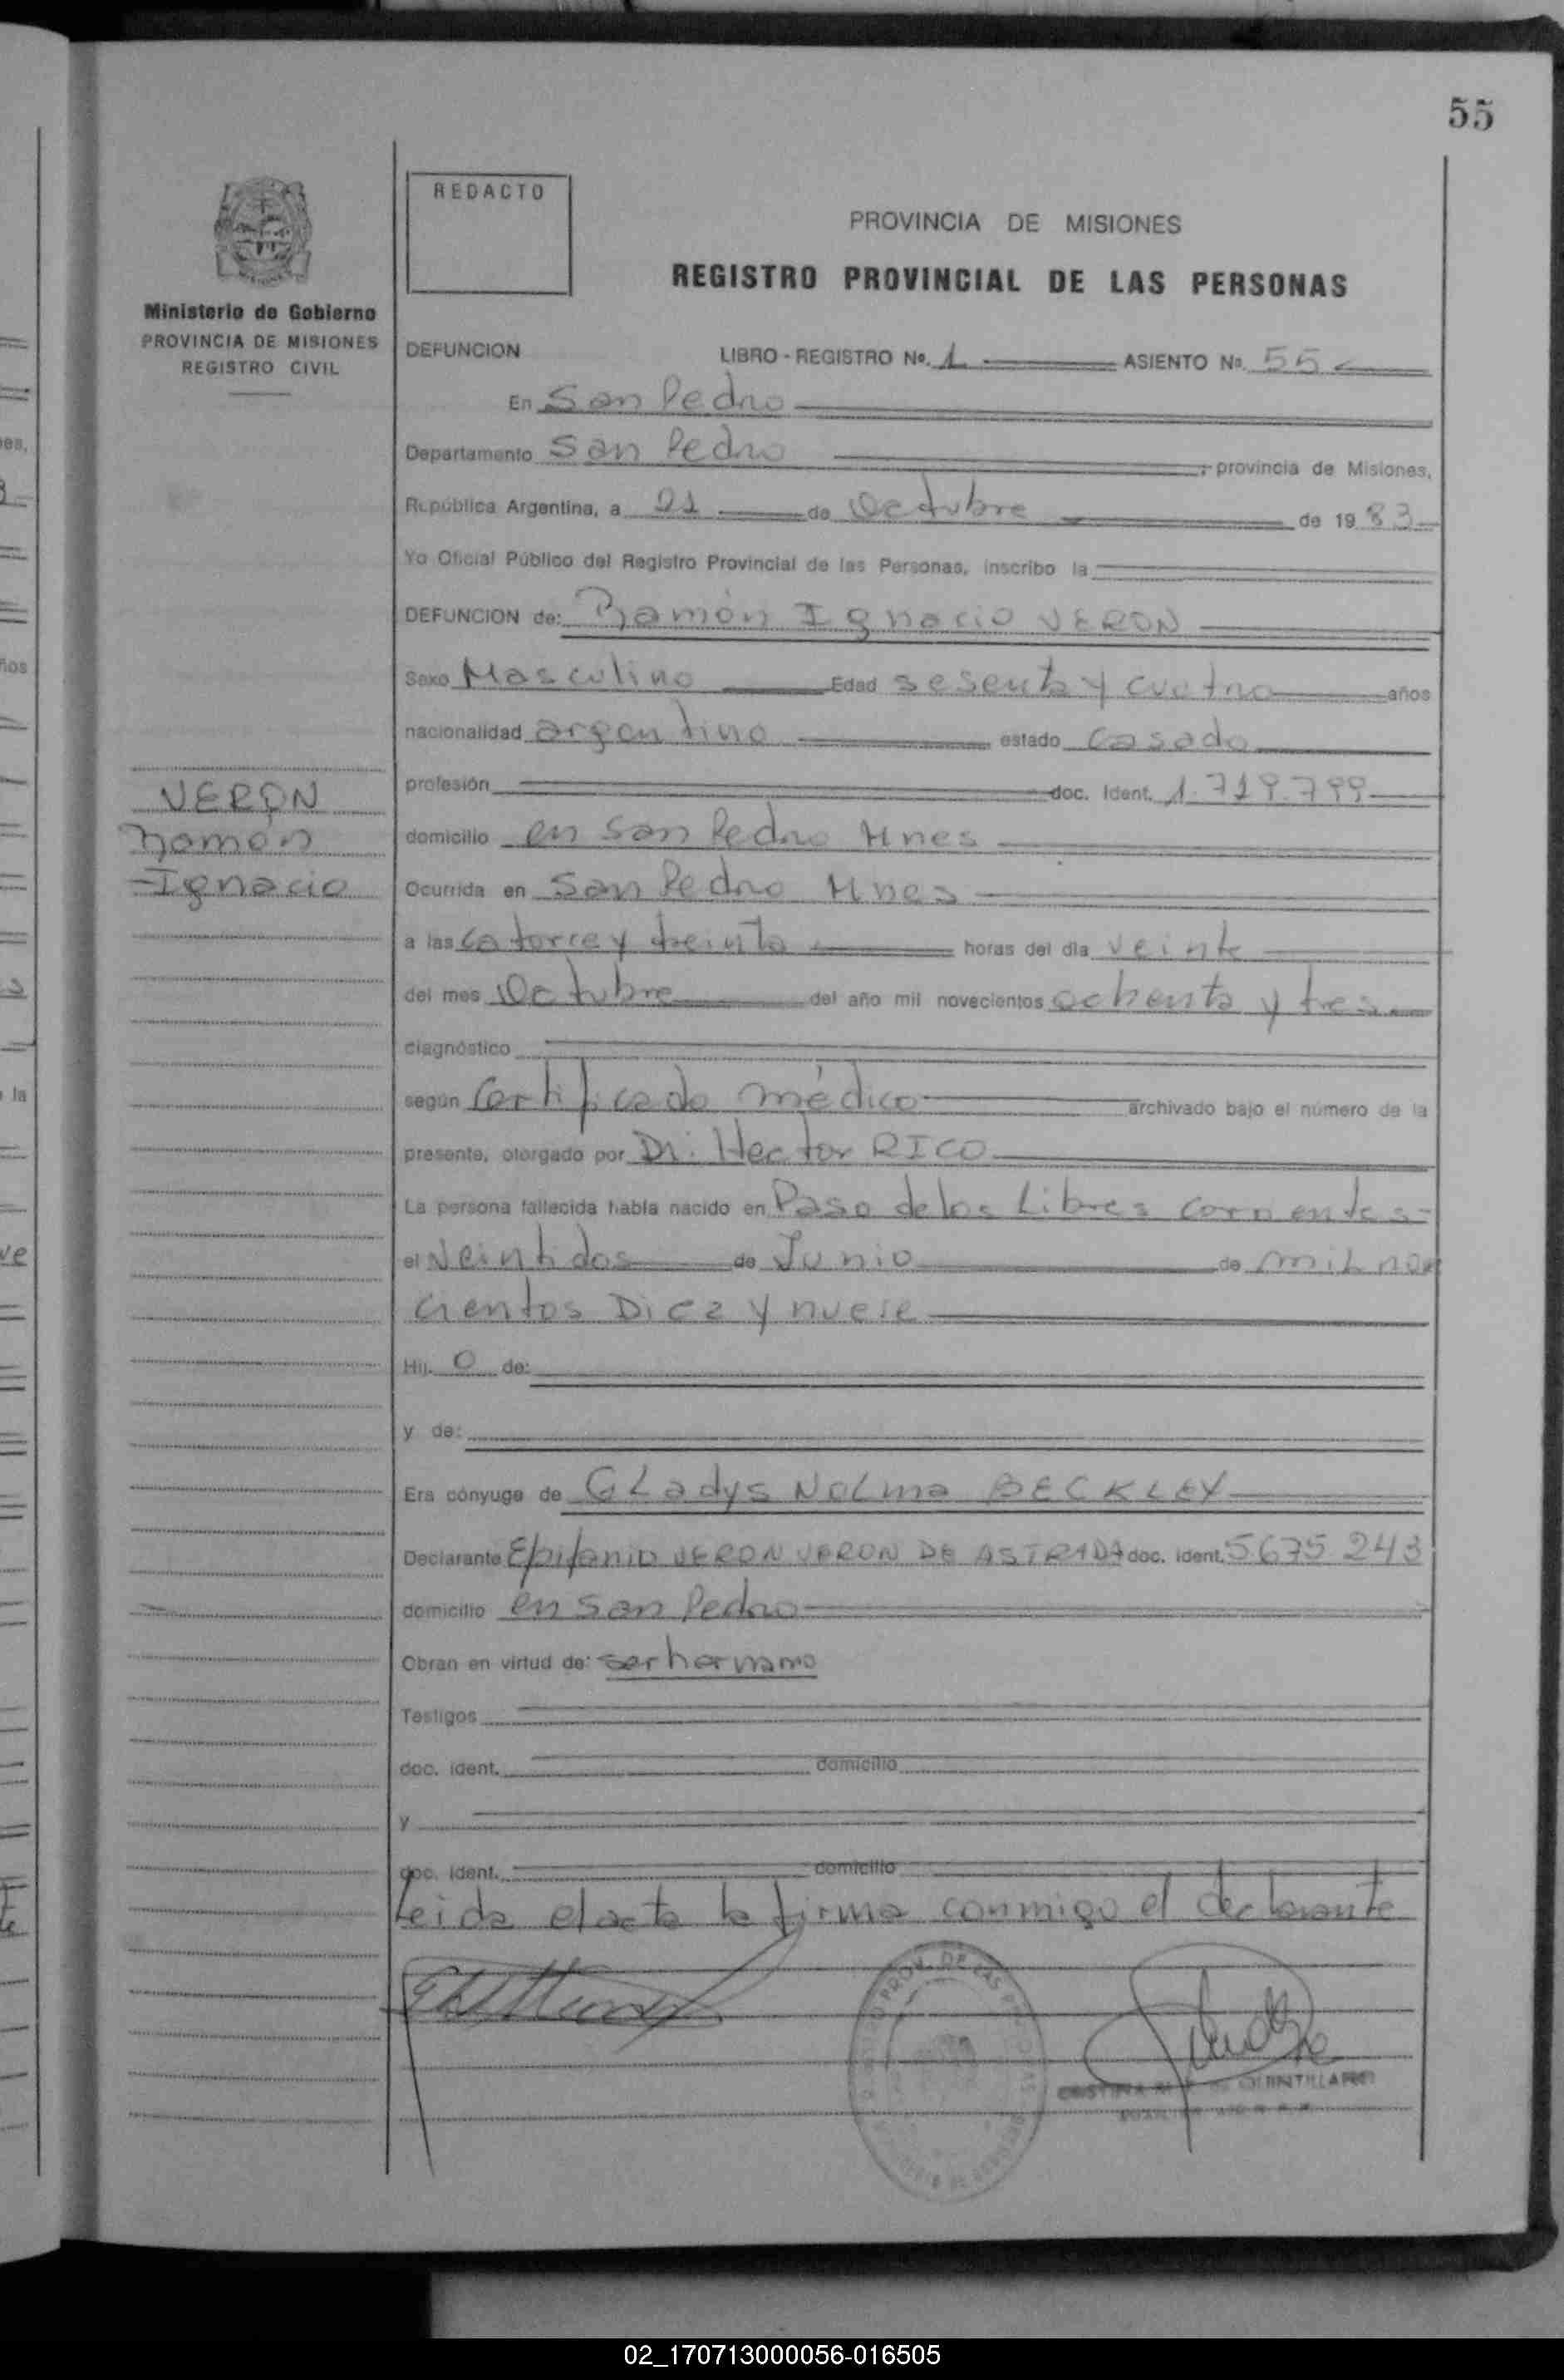 55
REDACTO
PROVINCIA DE MISIONES
REGISTRO PROVINCIAL DE LAS PERSONAS
Ministerio de Gobierno
PROVINCIA DE MISIONES
REGISTRO CIVIL
DEFUNCION LIBRO - REGISTRO No. 1 ASIENTO No. 55
En San Pedro
Departamento San Pedro ; provincia de Misiones,
República Argentina, a 21 de Octubre de 19 83
Yo Oficial Público del Registro Provincial de las Personas, inscribo la
DEFUNCION de: Ramón Ignacio VERON
Sexo Masculino Edad sesenta y cuatro años
nacionalidad argentino estado casado
profesión doc. Ident. 1.719.799
VERON
Ramón
Ignacio
domicilio en San Pedro Mnes
Ocurrida en San Pedro Mnes
a las catorce y treinta horas del día veinte
del mes Octubre del año mil novecientos ochenta y tres
diagnóstico
según Certificado médico archivado bajo el número de la
presente, otorgado por Dr. Hector RICO
La persona fallecida había nacido en Paso de los Libres Corrientes
el Veintidos de Junio de mil nove
cientos Diez y nueve
Hij. O de:
y de:
Era cónyuge de GLadys NOLma BECKLEY
Declarante Epifanio VERON VERON DE ASTRADA doc. ident. 5675 243
domicilio en San Pedro
Obran en virtud de: ser hermano
Testigos
doc. ident. domicilio
y
doc. ident. domicilio
Leida el acta la firma conmigo el declarante
PROV. DE LAS
QUINTILLAN
02_170713000056-016505